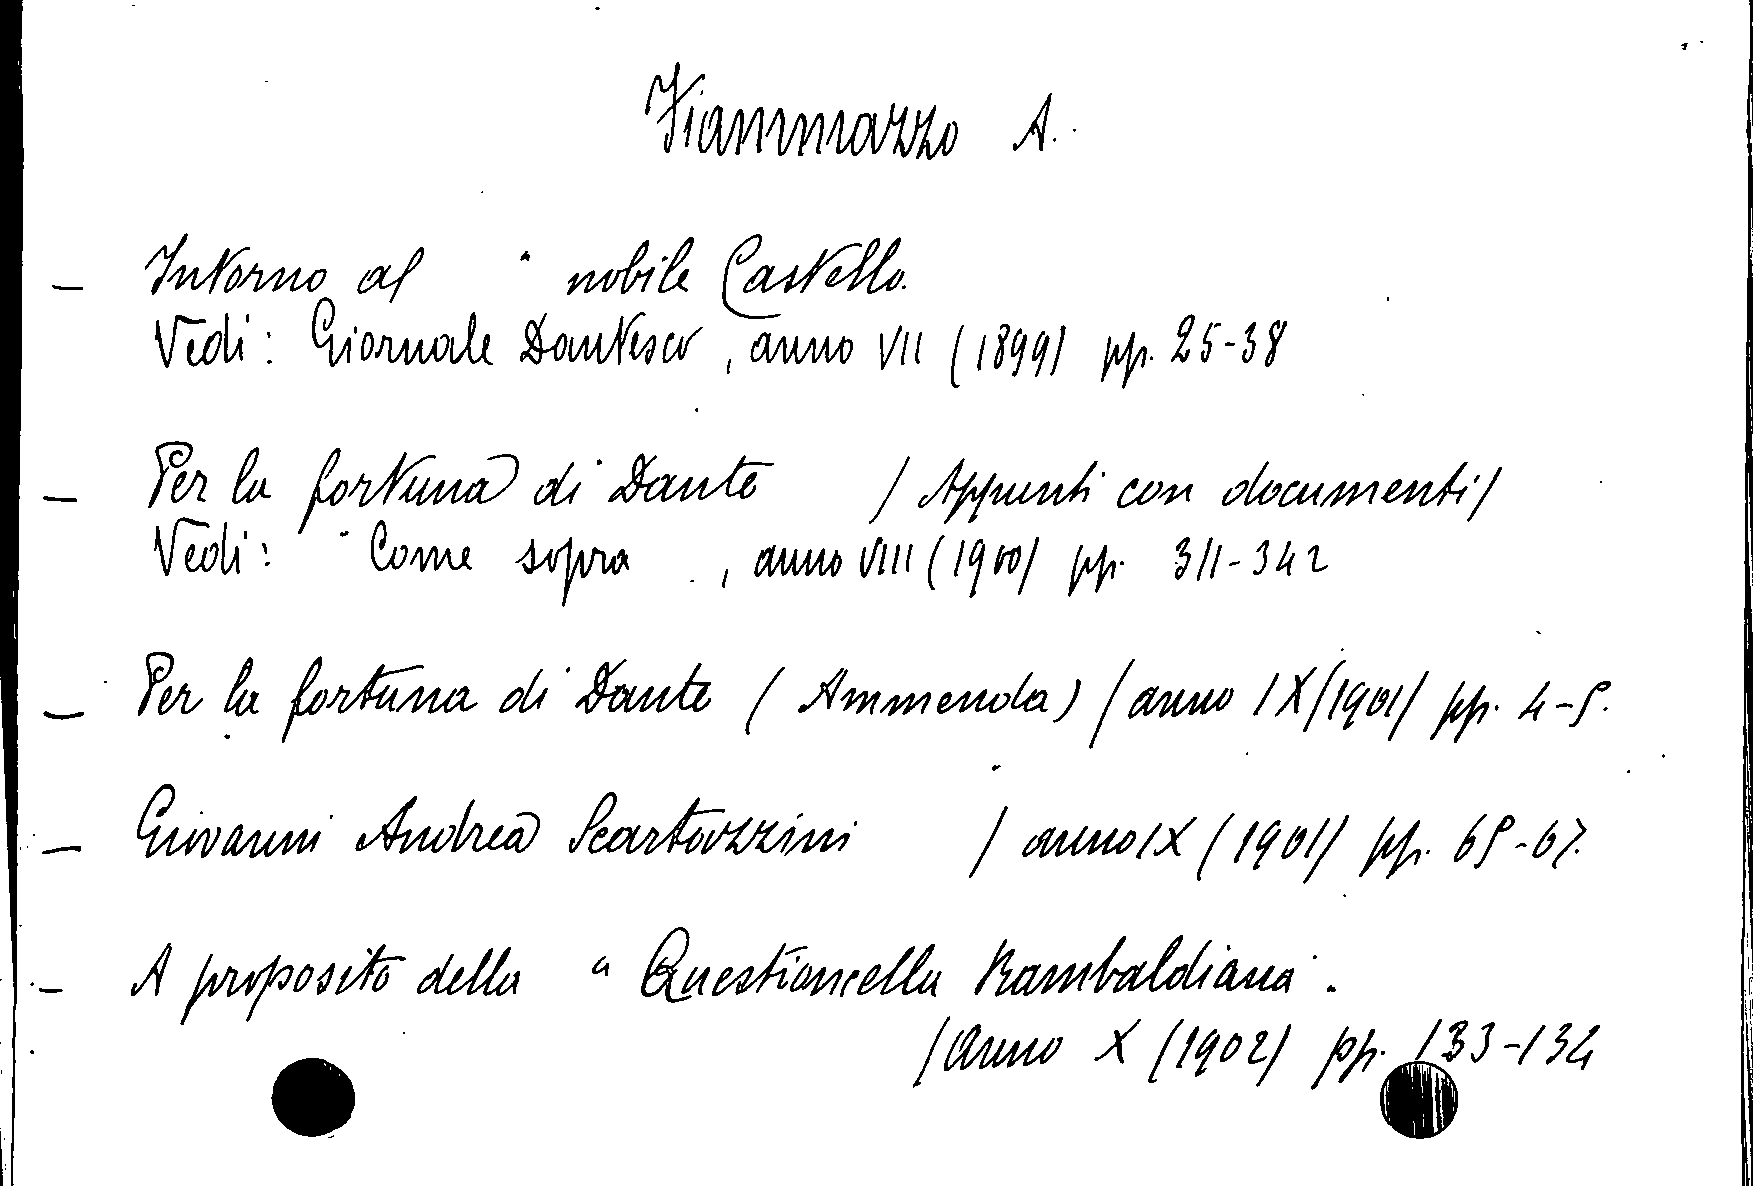 Fiammazzo A.
– Intorno al " nobile Castello.
Vedi: Giornale Dantesco, anno VII (1899) pp. 25-38
– Per la fortuna di Dante / Appunti con documenti/
Vedi: " Come sopra , anno VIII (1900) pp. 311-342
– Per la fortuna di Dante (Ammenda) / anno IX/1901/ pp. 4-5.
– Giovanni Andrea Scartazzini / anno IX (1901) pp. 65-67.
– A proposito della " Questioncella Rambaldiana".
/ Anno X (1902) pp. 133-134